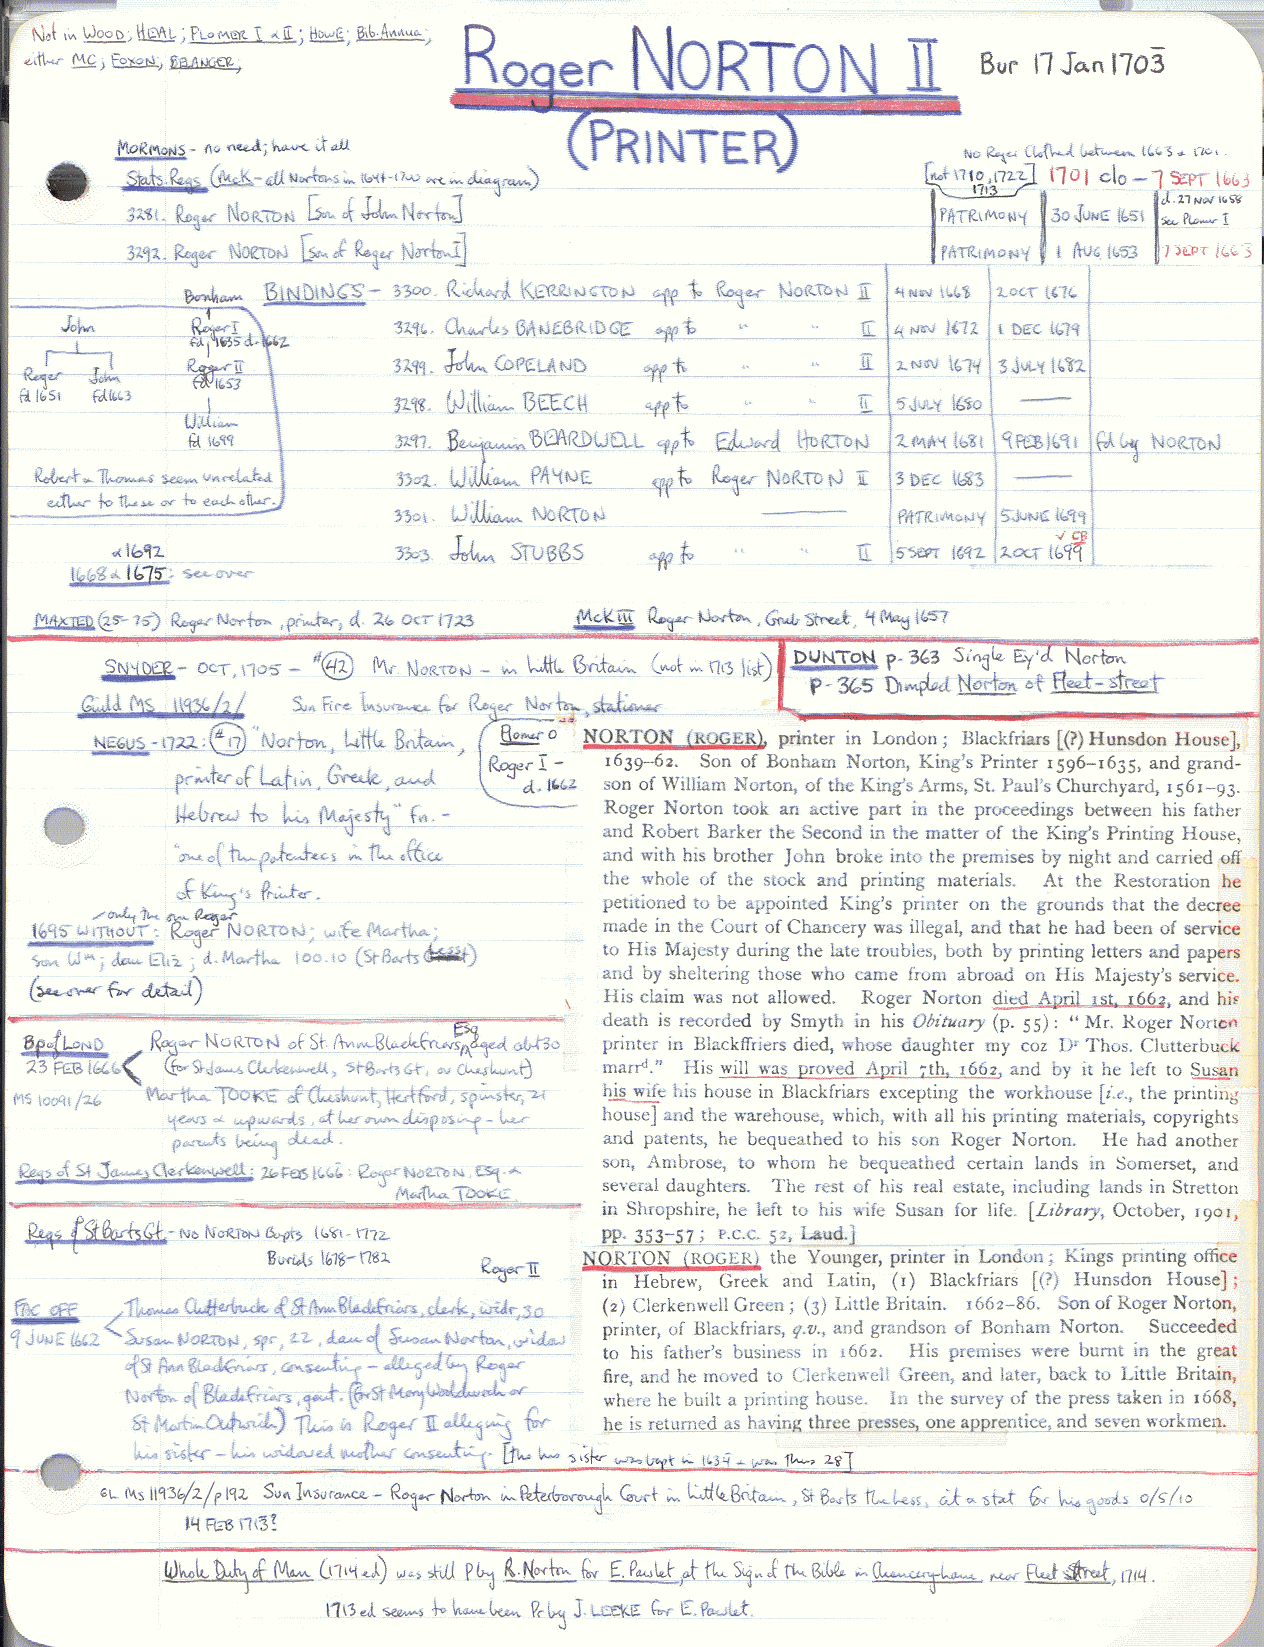 Not in WOOD; HEAL; PLOMER I & II; HOWE; Bib. Annua;
either MC; FOXON; BELANGER;
Roger NORTON II
(PRINTER)
Bur 17 Jan 1703
MORMONS - no need; have it all
Stats. Regs (McK - all Nortons in 1641-1700 are in diagram)
No Roger Clothed between 1663 & 1701.
[not 1710, 1722] 1701 clo - 7 SEPT 1663
1713
3281. Roger NORTON [son of John Norton] PATRIMONY 30 JUNE 1651 d. 27 NOV 1658 see Plomer I
3292. Roger NORTON [son of Roger Norton I] PATRIMONY 1 AUG 1653 7 SEPT 1663
BINDINGS - 3300. Richard KERRINGTON app to Roger NORTON II 4 NOV 1668 2 OCT 1676
3296. Charles BANEBRIDGE app to " " II 4 NOV 1672 1 DEC 1679
3299. John COPELAND app to " " II 2 NOV 1674 3 JULY 1682
3298. William BEECH app to " " II 5 JULY 1680 —
3297. Benjamin BEARDWELL app to Edward HORTON 2 MAY 1681 9 FEB 1691 fd by NORTON
3302. William PAYNE app to Roger NORTON II 3 DEC 1683 —
3301. William NORTON — PATRIMONY 5 JUNE 1699
✓ CB
3303. John STUBBS app to " " II 5 SEPT 1692 2 OCT 1699
Bonham
John Roger I
fd 1635 d. 1662
Roger John Roger II
fd 1651 fd 1663 fd 1653
William
fd 1699
Robert & Thomas seem unrelated
either to these or to each other.
& 1692
1668 & 1675: see over
MAXTED (25-75) Roger Norton, printer, d. 26 OCT 1723
McK III Roger Norton, Grub Street, 4 May 1657
SNYDER - OCT, 1705 - #42 Mr. NORTON - in Little Britain (not in 1713 list)
DUNTON p. 363 Single Ey'd Norton
p. 365 Dimpled Norton of Fleet-street
Guild MS 11936/2/ Sun Fire Insurance for Roger Norton, stationer
NEGUS - 1722: #17 "Norton, Little Britain,
printer of Latin, Greek, and
Hebrew to his Majesty" fn. -
"one of the patentees in the office
of King's Printer.
Plomer O
Roger I -
d. 1662
only the one Roger
1695 WITHOUT: Roger NORTON; wife Martha;
son Wm; dau Eliz; d. Martha 100.10 (St Barts)
(see over for detail)
Bp of LOND Roger NORTON of St. Ann Blackfriars, Esq aged abt 30
23 FEB 1666 (for St James Clerkenwell, St Barts Gt, or Cheshunt)
MS 10091/26 Martha TOOKE of Cheshunt, Hertford, spinster, 21
years & upwards, at her own disposing - her
parents being dead.
Regs of St James, Clerkenwell: 26 FEB 1666: Roger NORTON, Esq. &
Martha TOOKE.
Regs of St Barts Gt. - NO NORTON Bapts 1681-1772
Burials 1678-1782
Roger II
FAC OFF Thomas Clutterbuck of St Ann Blackfriars, clerk, widr, 30
9 JUNE 1662 Susan NORTON, spr, 22, dau of Susan Norton, widow
of St Ann Blackfriars, consenting - alleged by Roger
Norton of Blackfriars, gent. (for St Mary Woolchurch or
St Martin Outwich) This is Roger II alleging for
his sister - his widowed mother consenting. [tho his sister was bapt in 1634 & was thus 28]
NORTON (ROGER), printer in London; Blackfriars [(?) Hunsdon House],
1639–62. Son of Bonham Norton, King's Printer 1596–1635, and grand-
son of William Norton, of the King's Arms, St. Paul's Churchyard, 1561–93.
Roger Norton took an active part in the proceedings between his father
and Robert Barker the Second in the matter of the King's Printing House,
and with his brother John broke into the premises by night and carried off
the whole of the stock and printing materials. At the Restoration he
petitioned to be appointed King's printer on the grounds that the decree
made in the Court of Chancery was illegal, and that he had been of service
to His Majesty during the late troubles, both by printing letters and papers
and by sheltering those who came from abroad on His Majesty's service.
His claim was not allowed. Roger Norton died April 1st, 1662, and his
death is recorded by Smyth in his Obituary (p. 55): "Mr. Roger Norton
printer in Blackffriers died, whose daughter my coz Dr Thos. Clutterbuck
marrd." His will was proved April 7th, 1662, and by it he left to Susan
his wife his house in Blackfriars excepting the workhouse [i.e., the printing
house] and the warehouse, which, with all his printing materials, copyrights
and patents, he bequeathed to his son Roger Norton. He had another
son, Ambrose, to whom he bequeathed certain lands in Somerset, and
several daughters. The rest of his real estate, including lands in Stretton
in Shropshire, he left to his wife Susan for life. [Library, October, 1901,
pp. 353–57; P.C.C. 52, Laud.]
NORTON (ROGER) the Younger, printer in London; Kings printing office
in Hebrew, Greek and Latin, (1) Blackfriars [(?) Hunsdon House];
(2) Clerkenwell Green; (3) Little Britain. 1662–86. Son of Roger Norton,
printer, of Blackfriars, q.v., and grandson of Bonham Norton. Succeeded
to his father's business in 1662. His premises were burnt in the great
fire, and he moved to Clerkenwell Green, and later, back to Little Britain,
where he built a printing house. In the survey of the press taken in 1668,
he is returned as having three presses, one apprentice, and seven workmen.
GL MS 11936/2/p192 Sun Insurance - Roger Norton in Peterborough Court in Little Britain, St Barts the Less, at a stat for his goods 0/5/10
14 FEB 1713?
Whole Duty of Man (1714 ed) was still P by R. Norton for E. Pawlet, at the Sign of the Bible in Chancery-lane, near Fleet Street, 1714.
1713 ed seems to have been P by J. LEEKE for E. Pawlet.